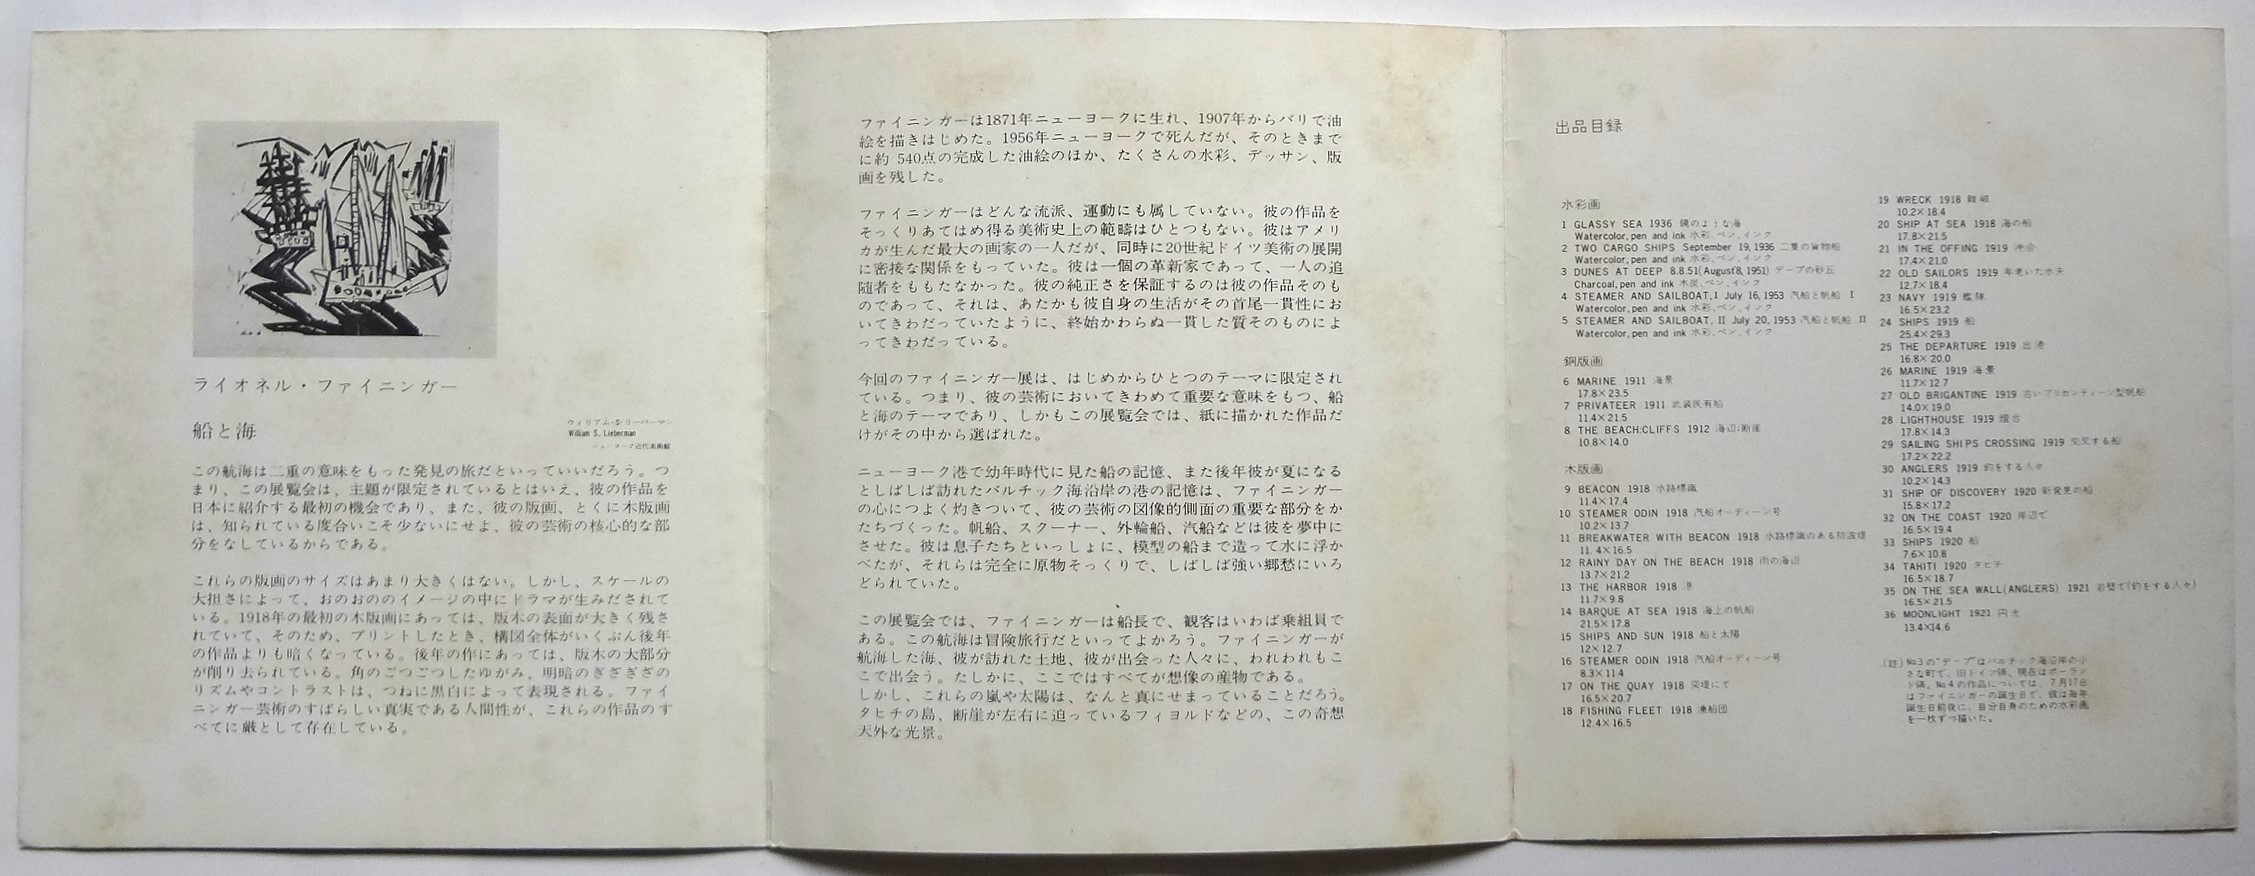 ライオネル・ファイニンガー
船と海
ウィリアム・S・リーバーマン
William S. Lieberman
ニューヨーク近代美術館
この航海は二重の意味をもった発見の旅だといっていいだろう。つ
まり、この展覧会は、主題が限定されているとはいえ、彼の作品を
日本に紹介する最初の機会であり、また、彼の版画、とくに木版画
は、知られている度合いこそ少ないにせよ、彼の芸術の核心的な部
分をなしているからである。
これらの版画のサイズはあまり大きくはない。しかし、スケールの
大担さによって、おのおののイメージの中にドラマが生みだされて
いる。1918年の最初の木版画にあっては、版木の表面が大きく残さ
れていて、そのため、プリントしたとき、構図全体がいくぶん後年
の作品よりも暗くなっている。後年の作にあっては、版木の大部分
が削り去られている。角のごつごつしたゆがみ、明暗のぎざぎざの
リズムやコントラストは、つねに黒白によって表現される。ファイ
ニンガー芸術のすばらしい真実である人間性が、これらの作品のす
べてに厳として存在している。
ファイニンガーは1871年ニューヨークに生れ、1907年からパリで油
絵を描きはじめた。1956年ニューヨークで死んだが、そのときまで
に約 540点の完成した油絵のほか、たくさんの水彩、デッサン、版
画を残した。
ファイニンガーはどんな流派、運動にも属していない。彼の作品を
そっくりあてはめ得る美術史上の範疇はひとつもない。彼はアメリ
カが生んだ最大の画家の一人だが、同時に20世紀ドイツ美術の展開
に密接な関係をもっていた。彼は一個の革新家であって、一人の追
随者をももたなかった。彼の純正さを保証するのは彼の作品そのも
のであって、それは、あたかも彼自身の生活がその首尾一貫性にお
いてきわだっていたように、終始かわらぬ一貫した質そのものによ
ってきわだっている。
今回のファイニンガー展は、はじめからひとつのテーマに限定され
ている。つまり、彼の芸術においてきわめて重要な意味をもつ、船
と海のテーマであり、しかもこの展覧会では、紙に描かれた作品だ
けがその中から選ばれた。
ニューヨーク港で幼年時代に見た船の記憶、また後年彼が夏になる
としばしば訪れたバルチック海沿岸の港の記憶は、ファイニンガー
の心につよく灼きついて、彼の芸術の図像的側面の重要な部分をか
たちづくった。帆船、スクーナー、外輪船、汽船などは彼を夢中に
させた。彼は息子たちといっしょに、模型の船まで造って水に浮か
べたが、それらは完全に原物そっくりで、しばしば強い郷愁にいろ
どられていた。
この展覧会では、ファイニンガーは船長で、観客はいわば乗組員で
ある。この航海は冒険旅行だといってよかろう。ファイニンガーが
航海した海、彼が訪れた土地、彼が出会った人々に、われわれもこ
こで出会う。たしかに、ここではすべてが想像の産物である。
しかし、これらの嵐や太陽は、なんと真にせまっていることだろう。
タヒチの島、断崖が左右に迫っているフィヨルドなどの、この奇想
天外な光景。
出品目録
水彩画
1 GLASSY SEA 1936 鏡のような海
Watercolor, pen and ink 水彩、ペン、インク
2 TWO CARGO SHIPS September 19, 1936 二隻の貨物船
Watercolor, pen and ink 水彩、ペン、インク
3 DUNES AT DEEP 8.8.51(August 8, 1951) デープの砂丘
Charcoal, pen and ink 木炭、ペン、インク
4 STEAMER AND SAILBOAT, I July 16, 1953 汽船と帆船 I
Watercolor, pen and ink 水彩、ペン、インク
5 STEAMER AND SAILBOAT, II July 20, 1953 汽船と帆船 II
Watercolor, pen and ink 水彩、ペン、インク
銅版画
6 MARINE 1911 海景
17.8×23.5
7 PRIVATEER 1911 武装民有船
11.4×21.5
8 THE BEACH:CLIFFS 1912 海辺:断崖
10.8×14.0
木版画
9 BEACON 1918 水路標識
11.4×17.4
10 STEAMER ODIN 1918 汽船オーディーン号
10.2×13.7
11 BREAKWATER WITH BEACON 1918 水路標識のある防波堤
11.4×16.5
12 RAINY DAY ON THE BEACH 1918 雨の海辺
13.7×21.2
13 THE HARBOR 1918 港
11.7×9.8
14 BARQUE AT SEA 1918 海上の帆船
21.5×17.8
15 SHIPS AND SUN 1918 船と太陽
12×12.7
16 STEAMER ODIN 1918 汽船オーディーン号
8.3×11.4
17 ON THE QUAY 1918 突堤にて
16.5×20.7
18 FISHING FLEET 1918 漁船団
12.4×16.5
19 WRECK 1918 難破
10.2×18.4
20 SHIP AT SEA 1918 海の船
17.8×21.5
21 IN THE OFFING 1919 沖合
17.4×21.0
22 OLD SAILORS 1919 年老いた水夫
12.7×18.4
23 NAVY 1919 艦隊
16.5×23.2
24 SHIPS 1919 船
25.4×29.3
25 THE DEPARTURE 1919 出港
16.8×20.0
26 MARINE 1919 海景
11.7×12.7
27 OLD BRIGANTINE 1919 古いブリガンティーン型帆船
14.0×19.0
28 LIGHTHOUSE 1919 燈台
17.8×14.3
29 SAILING SHIPS CROSSING 1919 交叉する船
17.2×22.2
30 ANGLERS 1919 釣をする人々
10.2×14.3
31 SHIP OF DISCOVERY 1920 新発見の船
15.8×17.2
32 ON THE COAST 1920 岸辺で
16.5×19.4
33 SHIPS 1920 船
7.6×10.8
34 TAHITI 1920 タヒチ
16.5×18.7
35 ON THE SEA WALL(ANGLERS) 1921 岩壁で(釣をする人々)
16.5×21.5
36 MOONLIGHT 1921 月光
13.4×14.6
(註) No.3の"デープ"はバルチック海沿岸の小
さな町で、旧ドイツ領、現在はポーラン
ド領。No.4の作品については、7月17日
はファイニンガーの誕生日で、彼は毎年
誕生日前夜に、自分自身のための水彩画
を一枚ずつ描いた。